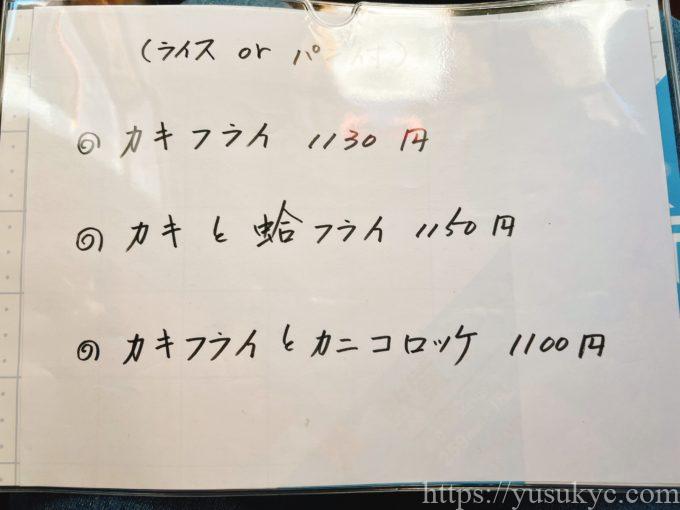 (ライス or パン付)
カキフライ 1130円
カキと蛤フライ 1150円
カキフライとカニコロッケ 1100円
https://yusukyc.com